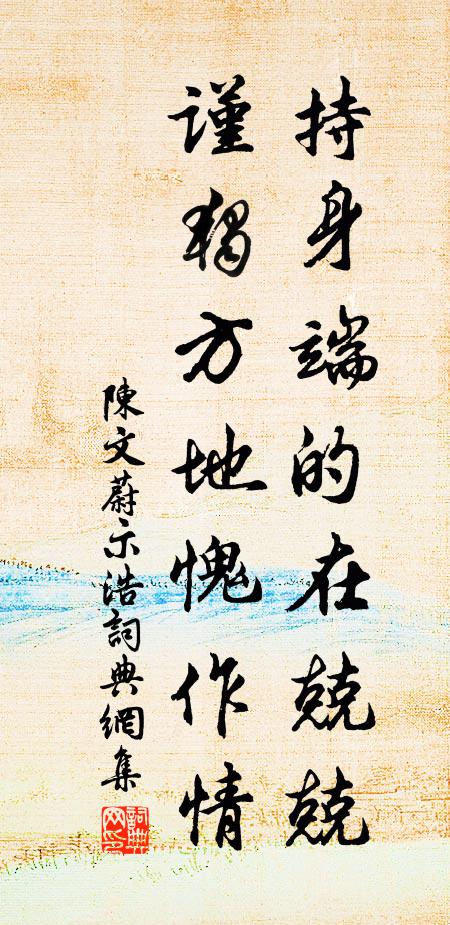 持身端的在兢兢
謹獨方地愧作情
陳文蔚示浩詞典網集
詞典網印